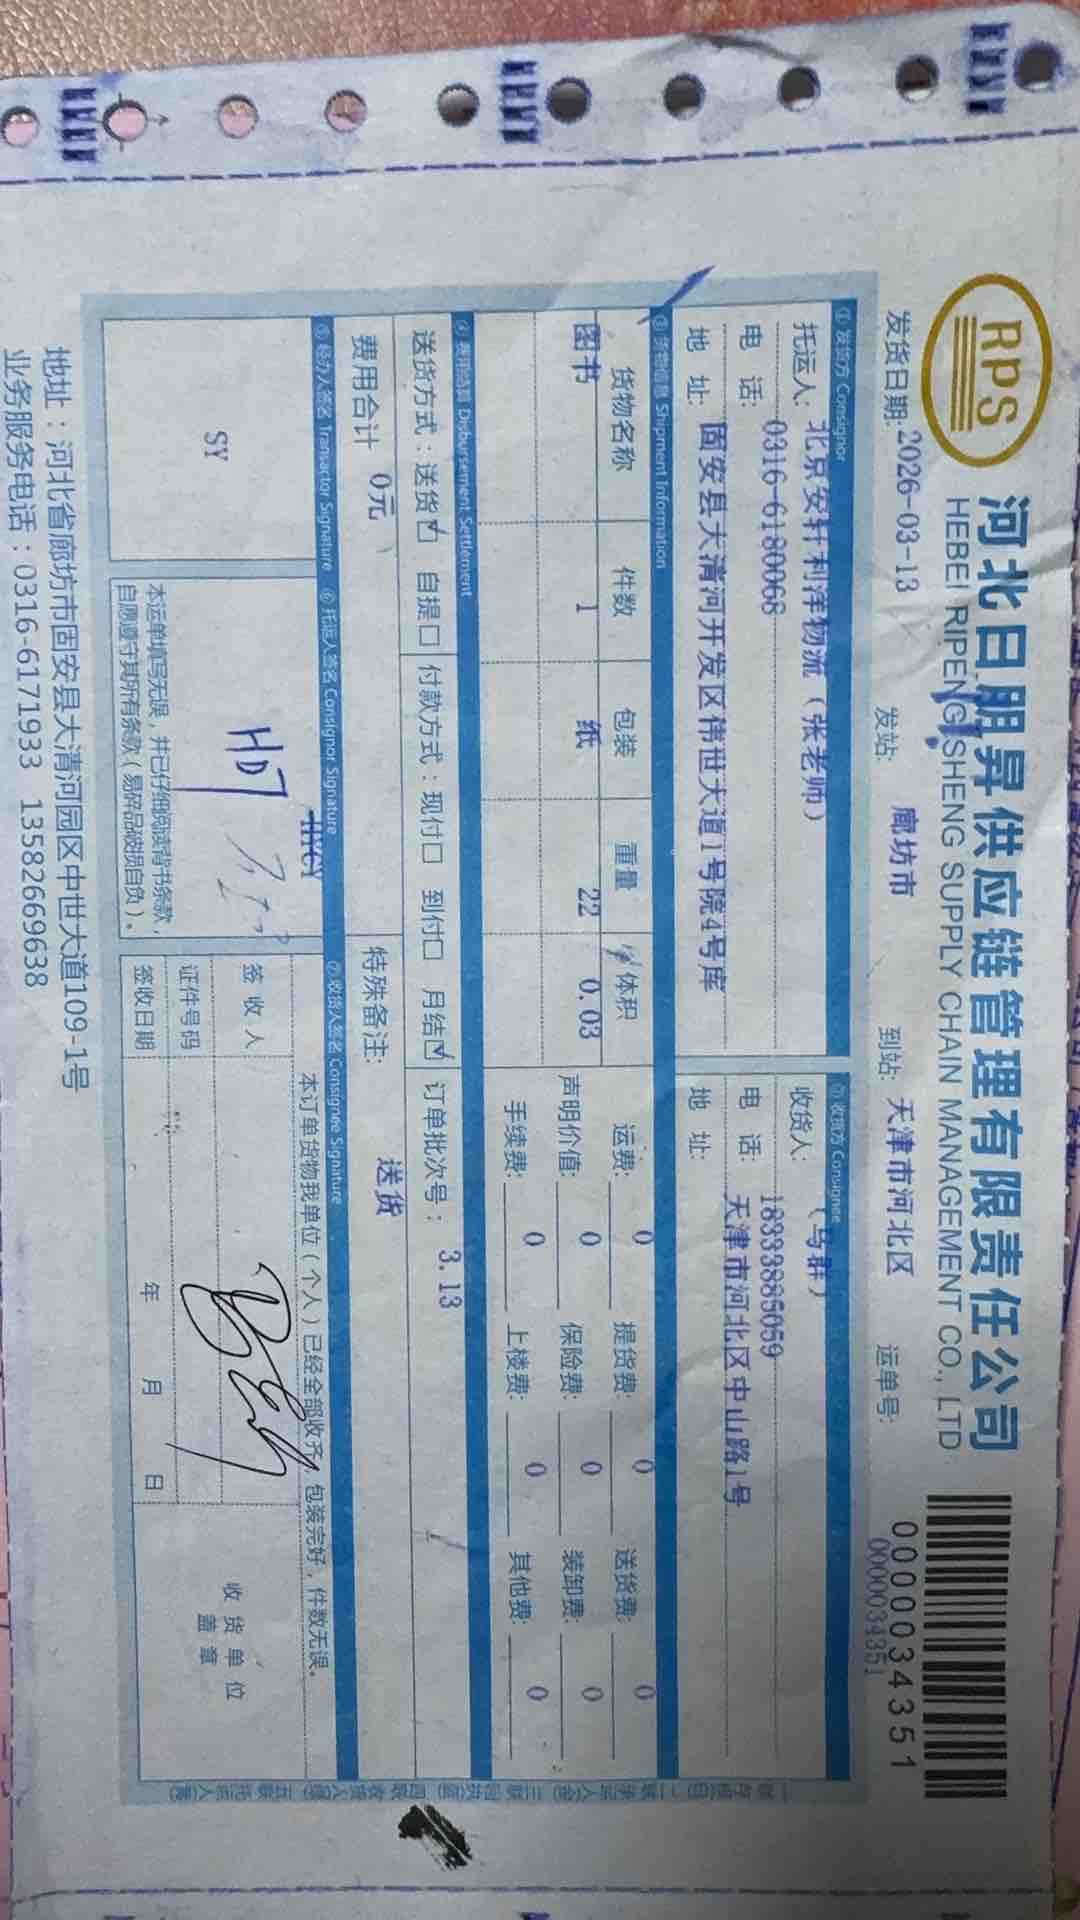 RPS
河北日朋昇供应链管理有限责任公司
HEBEI RIPENG SHENG SUPPLY CHAIN MANAGEMENT CO., LTD
0000034351
0000034351
发货日期: 2026-03-13 发站: 廊坊市 到站: 天津市河北区 运单号:
① 发货方 Consignor
托运人: 北京安轩利洋物流（张老师）
电 话: 0316-6180068
地 址: 固安县大清河开发区伟世大道1号院4号库
② 收货方 Consignee
收货人: （马群）
电 话: 18333885059
地 址: 天津市河北区中山路1号
③ 货物信息 Shipment Information
货物名称 件数 包装 重量 体积
图书 1 纸 22 0.03
运费: 0 提货费: 0 送货费: 0
声明价值: 0 保险费: 0 装卸费: 0
手续费: 0 上楼费: 0 其他费: 0
④ 费用结算 Disbursement Settlement
送货方式：送货☑ 自提☐ 付款方式：现付☐ 到付☐ 月结☑ 订单批次号： 3.13
费用合计 0元 特殊备注: 送货
⑤ 经办人签名 Transactor Signature
SY
⑥ 托运人签名 Consignor Signature
HD
本运单填写无误，并已仔细阅读背书条款，
自愿遵守其所有条款（易碎品破损自负）。
⑦ 收货人签名 Consignee Signature
本订单货物我单位（个人）已经全部收齐，包装完好，件数无误。
签 收 人
证件号码
签收日期 年 月 日
收 货 单 位
盖 章
地址：河北省廊坊市固安县大清河园区中世大道109-1号
业务服务电话：0316-6171933 13582669638